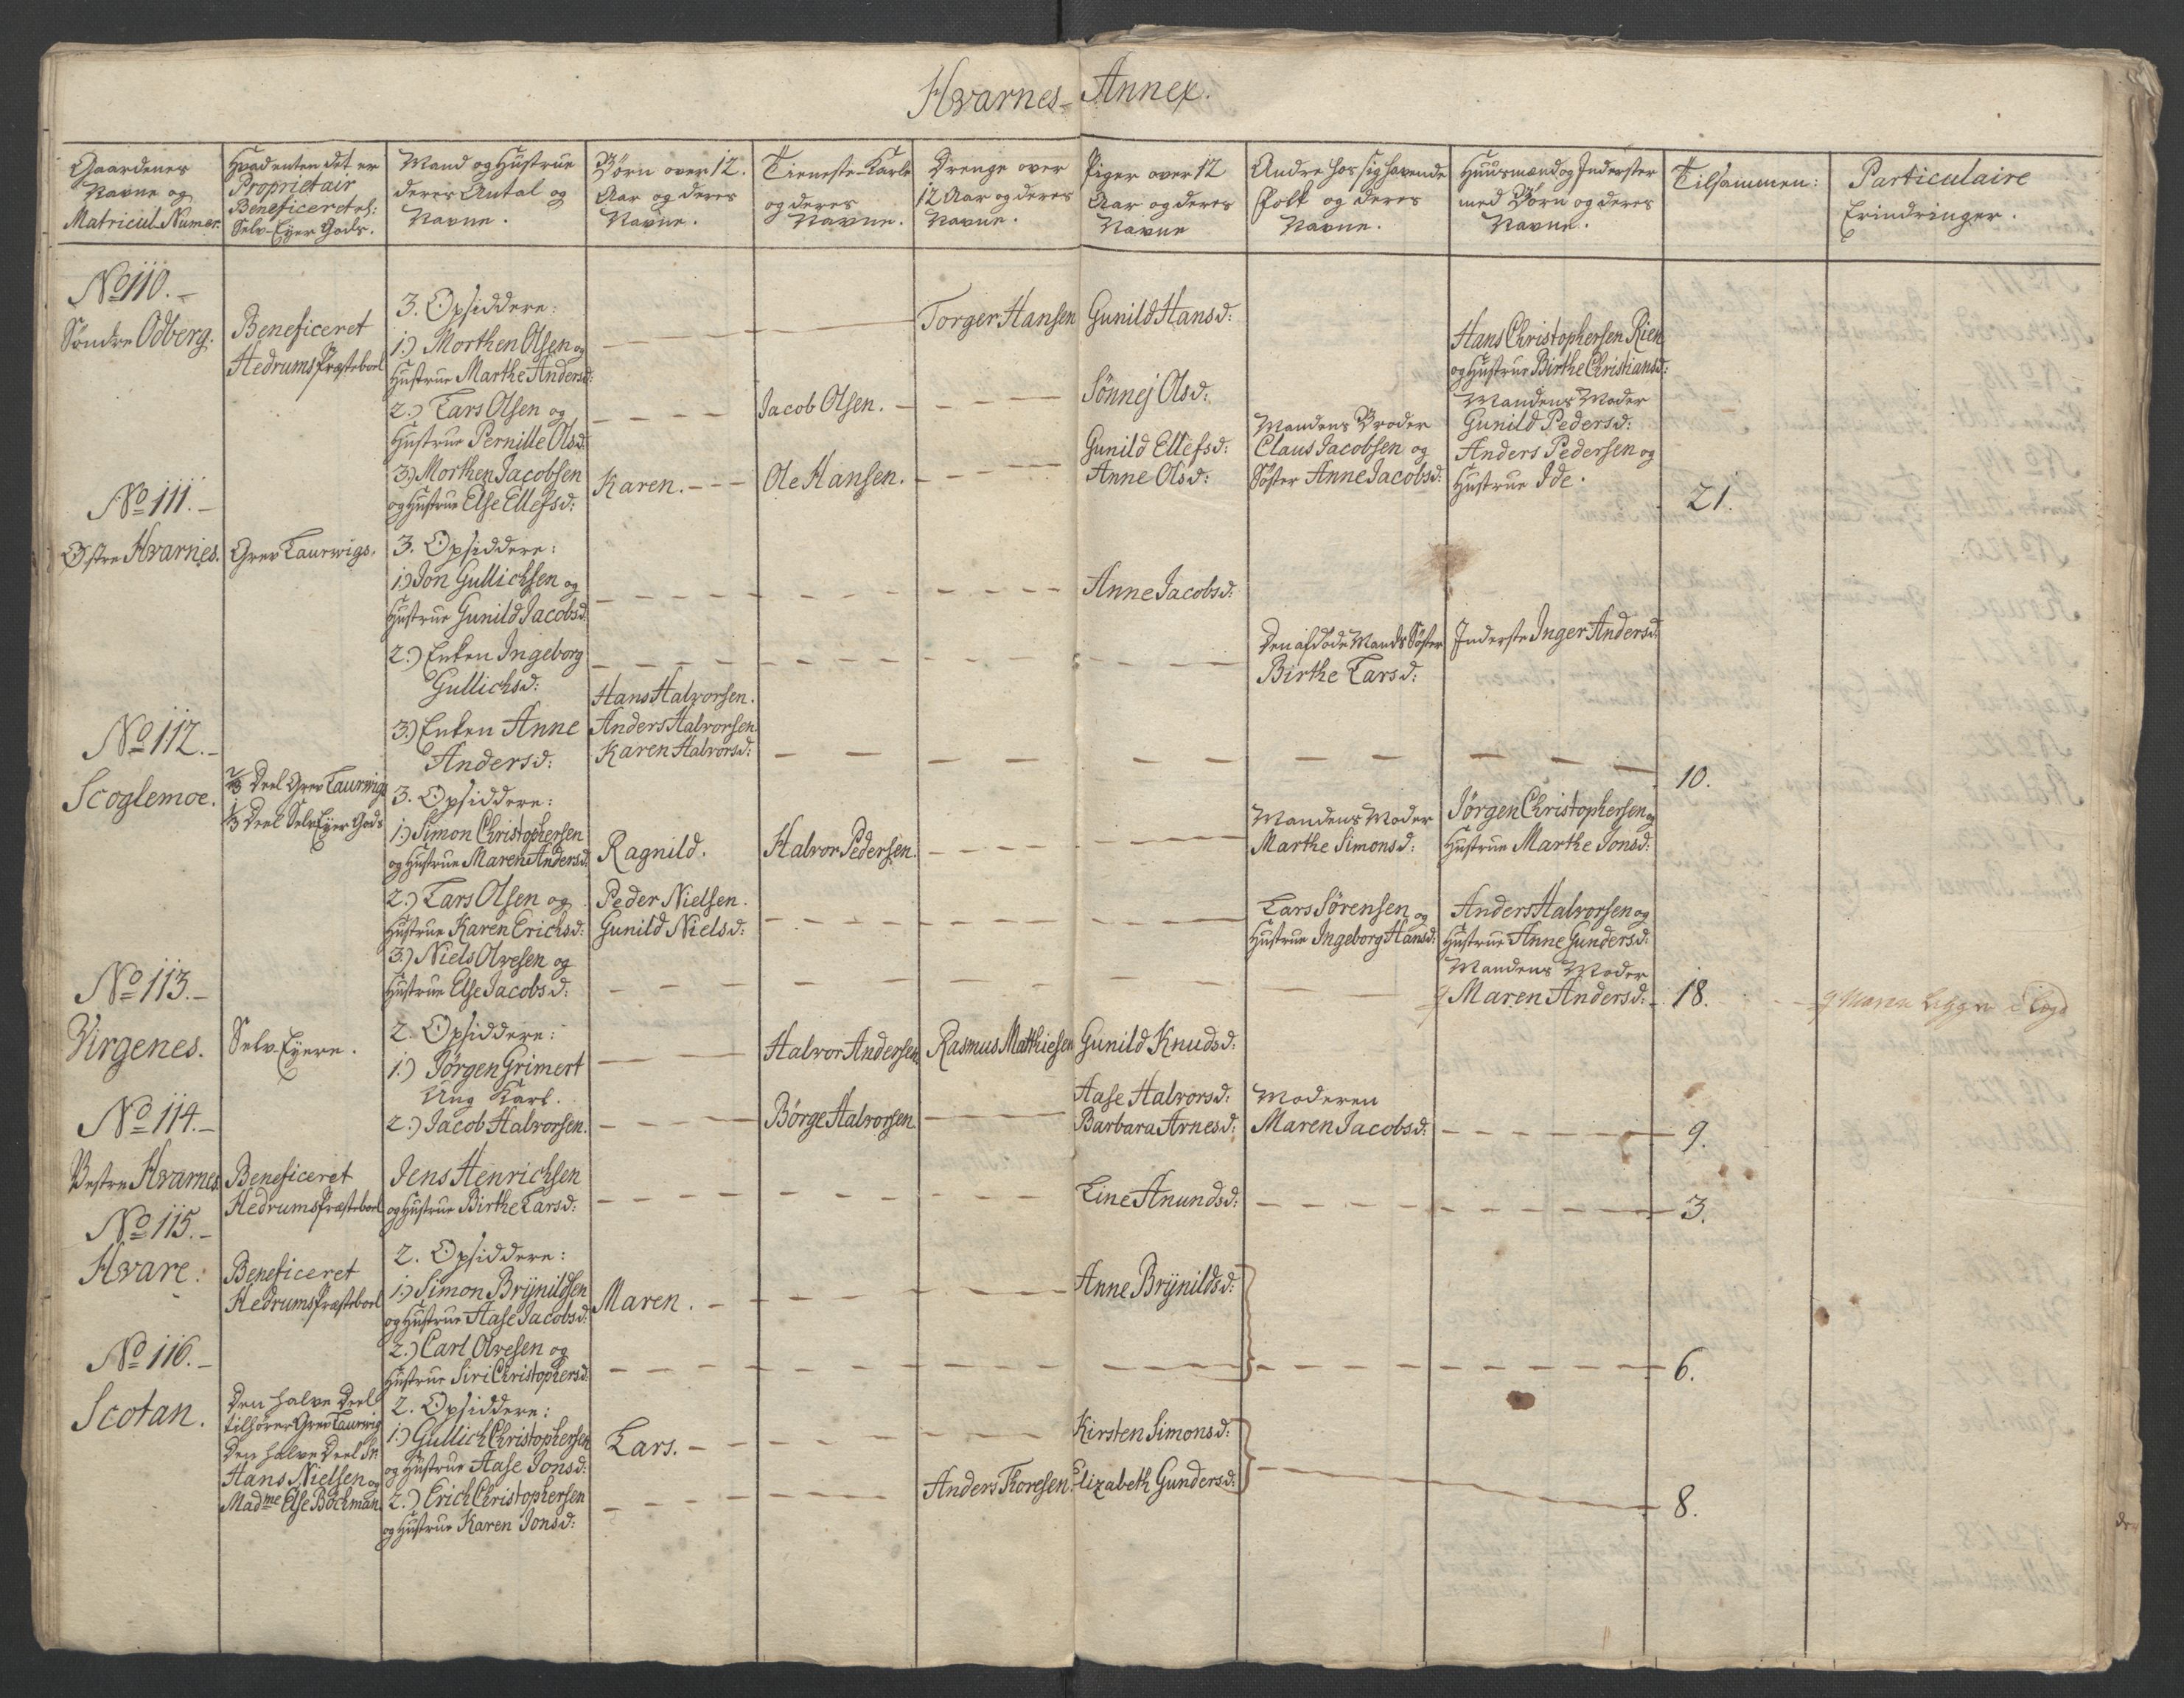 Hvarnes- Annex.
Gaardenes Navne og Matricul-Numer.
Hvad enten det er Proprietair Beneficert el: Selv-Eyer Gods.
Mand og Hustrue deres Antal og Navne.
Børn over 12. Aar og deres Navne.
Tieneste-Karle og deres Navne.
Drenge over 12 Aar og deres Navne.
Piger over 12 Aar og deres Navne
Andre hos sig havende Folk og deres Navne.
Huusmænd og Inderster med Børn og deres Navne.
Tilsammen:
Particulaire Erindringer.
No 110.-
Søndre Odberg.
Beneficeret
Hedrums Præsteboel
3. Opsiddere:
1.) Morthen Olsen og
Hustrue Marthe Andersd:
Torger Hansen
Gunild Hansd:
Hans Christophersen Rien
og Hustrue Birthe Christiansd:
Mandens Moder
Gunild Pedersd:
2.) Lars Olsen og
Hustrue Pernille Olsd:
Jacob Olsen.
Sönnej Olsd:
3.) Morthen Jacobsen
og Hustrue Else Ellefsd:
Karen.
Ole Hansen.
Gunild Ellefsd:
Anne Olsd:
Mandens Broder
Claus Jacobsen og
Søster Anne Jacobsd:
Anders Pedersen og
Hustrue Ide.
21.
No 111.-
Østre Hvarnes.
Grev Laurwigs.
3. Opsiddere:
1.) Jon Gullichsen og
Hustrue Gunild Jacobsd:
Anne Jacobsd:
2.) Enken Ingeborg
Gullichsd:
Den afdøde Mands Søster
Birthe Larsd:
Inderste Inger Andersd:
3.) Enken Anne
Andersd:
Hans Halvorsen.
Anders Halvorsen
Karen Halvorsd:
10.
No 112.-
Scoglemoe.
2/3 Deel Grev Laurwigs
1/3 Deel Selv Eyer Gods
3. Opsiddere:
1.) Simon Christophersen
og Hustrue Maren Andersd:
Ragnild.
Halvor Pedersen.
Mandens Moder
Marthe Simonsd:
Jörgen Christophersen og
Hustrue Marthe Jonsd:
2.) Lars Olsen og
Hustrue Karen Erichsd:
Peder Nielsen.
Gunild Nielsd:
Lars Sörensen og
Hustrue Ingeborg Hansd:
Anders Halvorsen og
Hustrue Anne Gundersd:
Mandens Moder
Maren Andersd:
3.) Niels Olvesen og
Hustrue Else Jacobsd:
18.
Maren ligger Lægd
No 113.-
Virgenes.
Selv-Eyere.
2. Opsiddere:
1.) Jörgen Grimert
Ung Karl.
Halvor Andersen
Rasmus Matthiesen
Gunild Knudsd:
2.) Jacob Halvorsen.
Börge Halvorsen
Aase Halvorsd:
Barbara Arnesd:
Moderen
Maren Jacobsd:
9.
No 114.-
Vestre Hvarnes
Beneficeret
Hedrums Præsteboel
Jens Henrichsen
og Hustrue Birthe Larsd:
Line Anundsd:
3.
No 115.-
Hvare.
Beneficeret
Hedrums Præsteboel
2. Opsiddere:
1.) Simon Brÿnildsen
og Hustrue Aase Jacobsd:
Maren.
Anne Brÿnildsd:
2.) Carl Olvesen og
Hustrue Siri Christophersd:
6.
No 116.-
Scotan.
Den halve Deel
tilhører Grev Laurwig
Den halve Deel Sr:
Hans Nielsen og
Madme Else Böchman
2. Opsiddere:
1.) Gullich Christophersen
og Hustrue Aase Jonsd:
Lars.
Kirsten Simonsd:
2.) Erich Christophersen
og Hustrue Karen Jonsd:
Anders Thoresen.
Elizabeth Gundersd:
8.